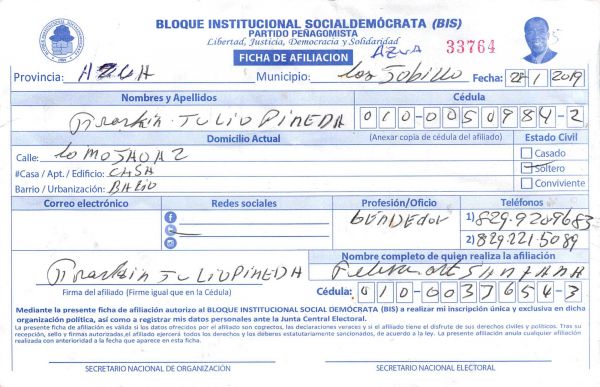 BLOQUE INSTITUCIONAL SOCIALDEMÓCRATA (BIS)
PARTIDO PEÑAGOMISTA
Libertad, Justicia, Democracia y Solidaridad
AZUA
33764
FICHA DE AFILIACION
Provincia: AZUA Municipio: Los Jobillo Fecha: 28-1 2019
Nombres y Apellidos Cédula
Franklin JULIO PINEDA 010-0050984-2
Domicilio Actual (Anexar copia de cédula del afiliado) Estado Civil
Calle: Casado
#Casa / Apt. / Edificio: CASA Soltero
Barrio / Urbanización: BARIO Conviviente
Correo electrónico Redes sociales Profesión/Oficio Teléfonos
BENDEDOR 1) 829-9209683
2) 829-221-5089
Nombre completo de quien realiza la afiliación
Franklin JULIO PINEDA SANTANA
Firma del afiliado (Firme igual que en la Cédula) Cédula: 010-0037654-3
Mediante la presente ficha de afiliación autorizo al BLOQUE INSTITUCIONAL SOCIAL DEMÓCRATA (BIS) a realizar mi inscripción única y exclusiva en dicha
organización política, así como a registrar mis datos personales ante la Junta Central Electoral.
La presente ficha de afiliación es válida si los datos ofrecidos por el afiliado son correctos, las declaraciones veraces y si el afiliado tiene el disfrute de sus derechos civiles y políticos. Tras su
recepción, sello y firmas autorizadas, el afiliado ejercerá todos los derechos y los deberes estatutariamente sancionados, de acuerdo a la ley. La presente afiliación anula cualquier afiliación
realizada con anterioridad a la fecha que aparece en esta ficha.
SECRETARIO NACIONAL DE ORGANIZACIÓN SECRETARIO NACIONAL ELECTORAL